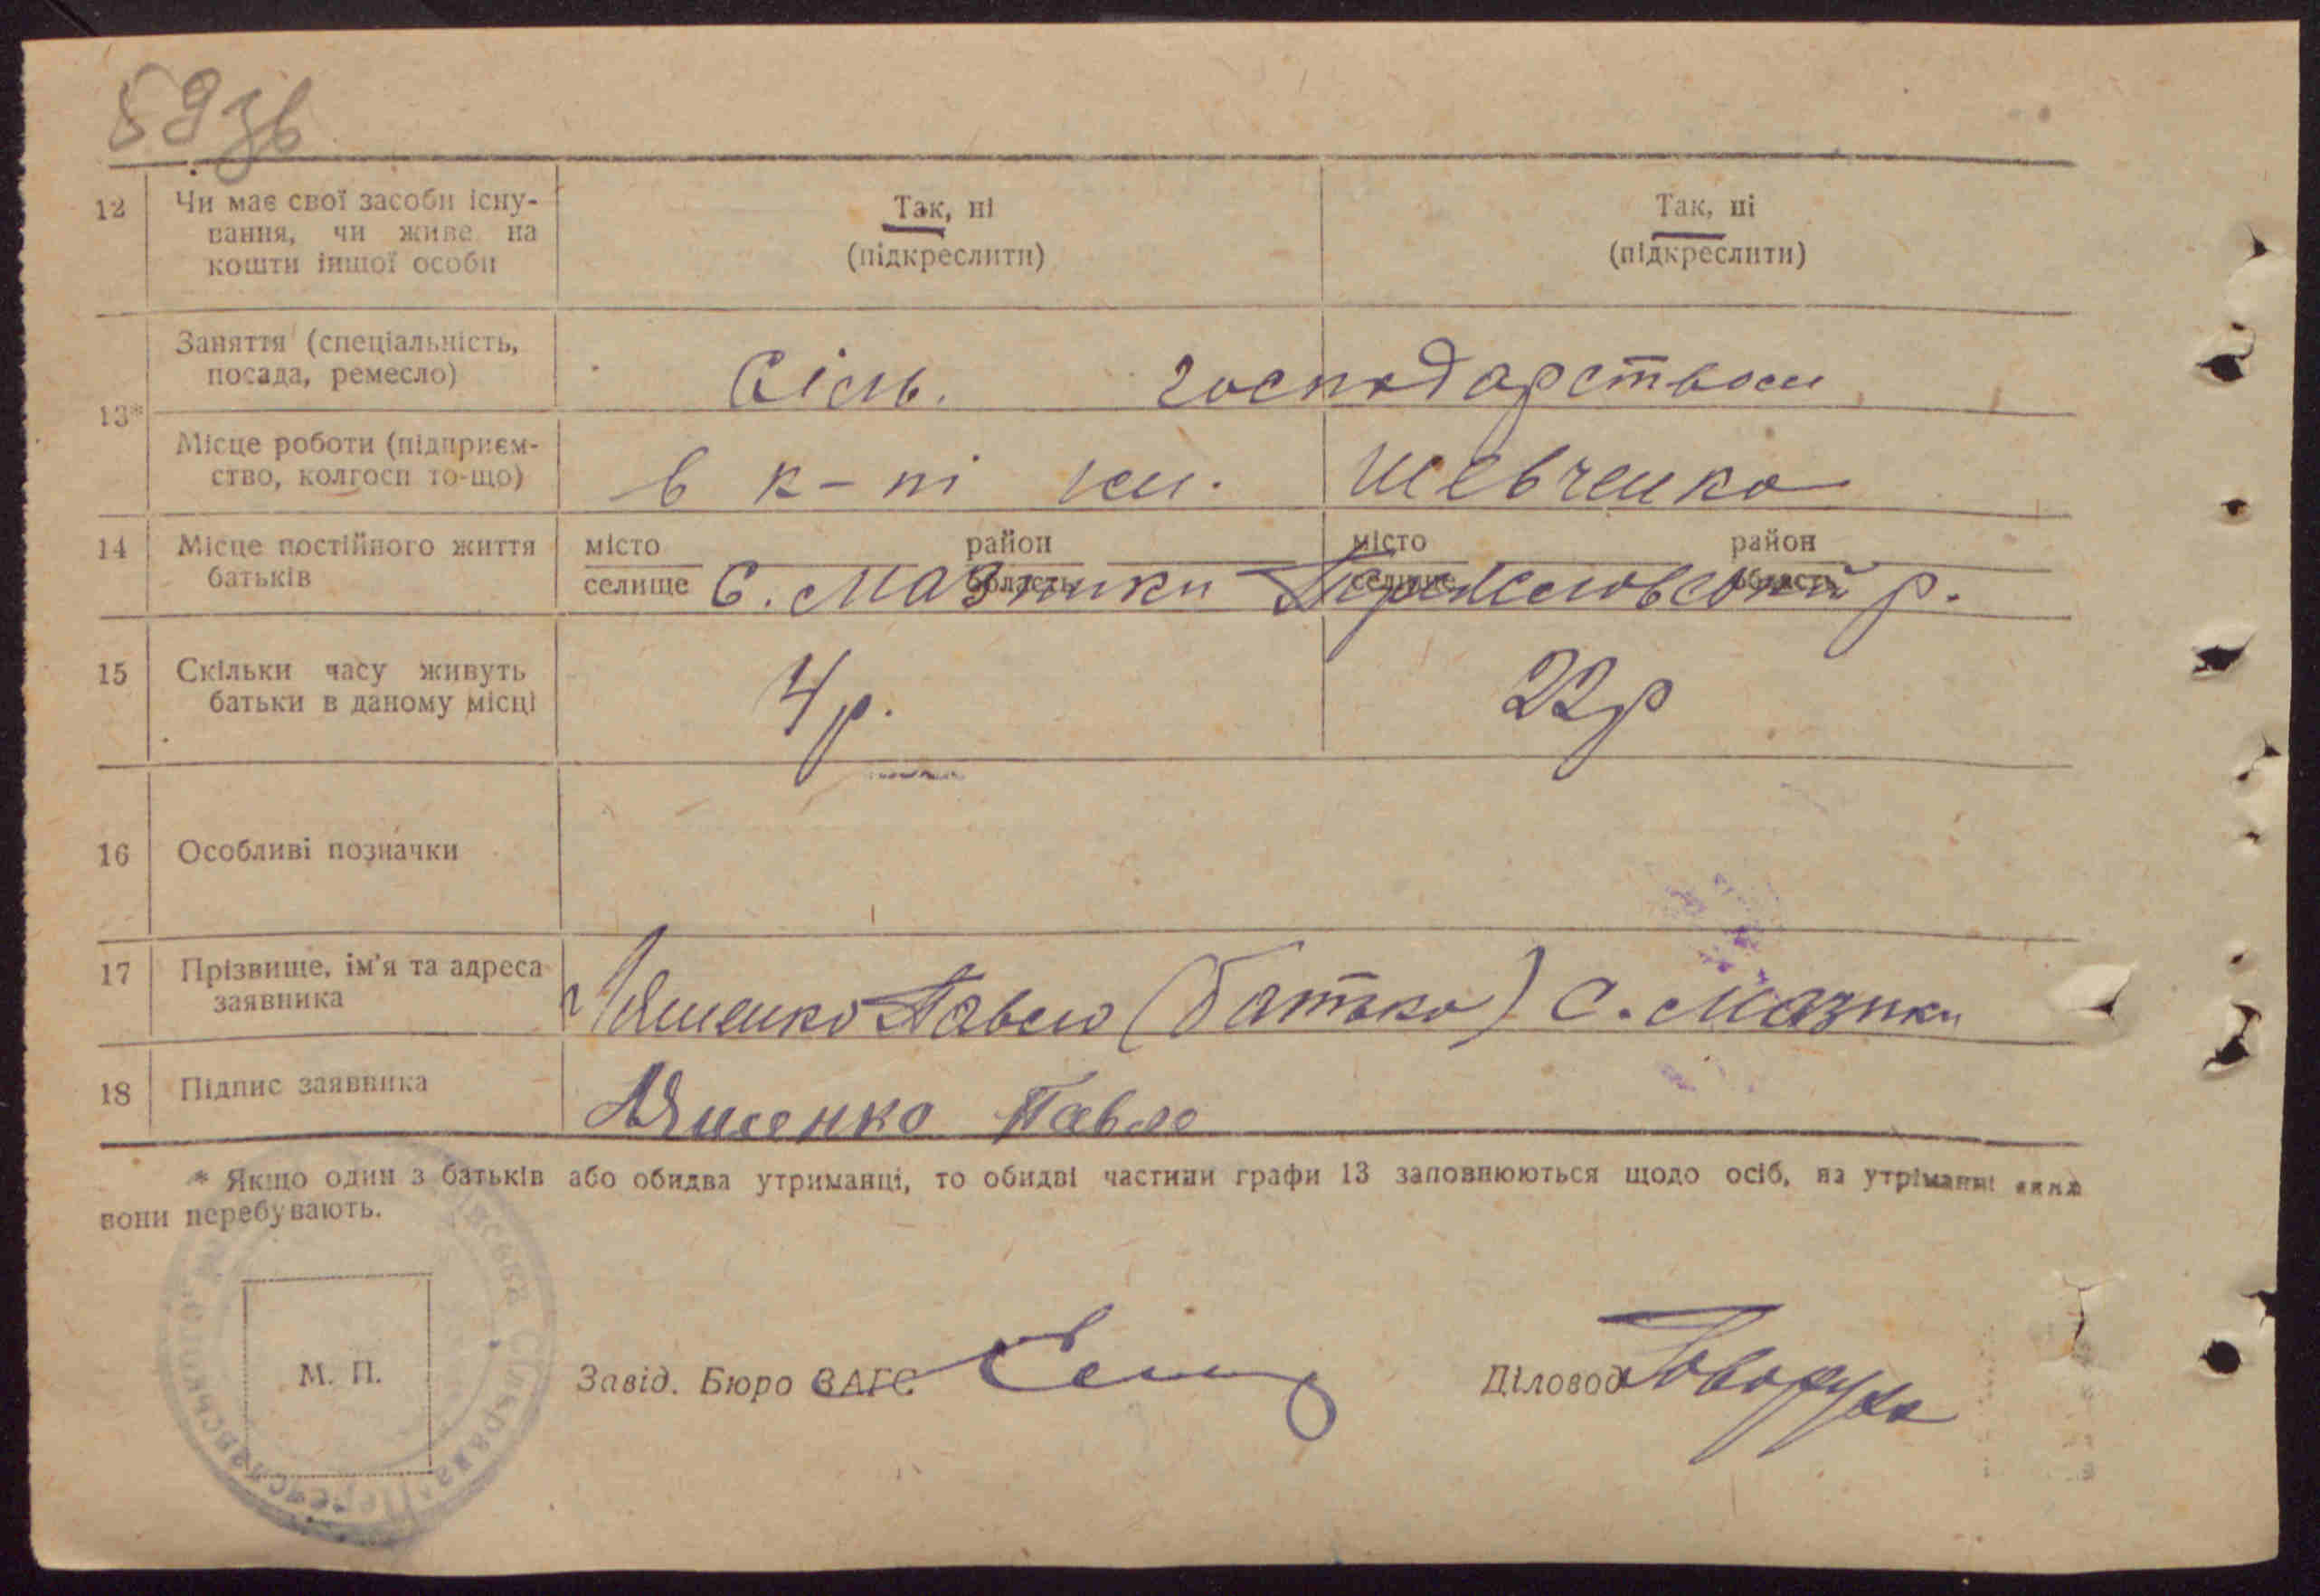 59зв
12 Чи має свої засоби існу-
вання, чи живе на
кошти іншої особи
Так, ні
(підкреслити)
Так, ні
(підкреслити)
13*
Заняття (спеціальність,
посада, ремесло)
Сіль. господарством
Місце роботи (підприєм-
ство, колгосп то-що)
в к-пі ім. Шевченко
14 Місце постійного життя
батьків
місто район
селище область
місто район
селище область
С. Мазінки р.
15 Скільки часу живуть
батьки в даному місці
4р. 22р
16 Особливі позначки
17 Прізвище, ім'я та адреса
заявника
Павло (батько) С. Мазінки
18 Підпис заявника
Павло
* Якщо один з батьків або обидва утриманці, то обидві частини графи 13 заповнюються щодо осіб, на утриманні яких
вони перебувають.
М. П.
Завід. Бюро ЗАГС
Діловод